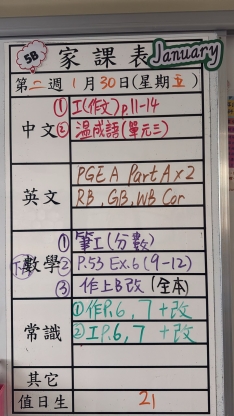 5B 家課表 January
第二週 1月30日(星期五)
中文 ① 工(作文)p.11-14
② 溫成語(單元三)
英文 PGE A Part A x 2
RB, GB, WB Cor
數學 ① 筆工(分數)
② P.53 Ex.6 (9-12)
③ 作上B改 (全本)
常識 ①作P.6, 7 + 改
②工P.6, 7 + 改
其它
值日生 21